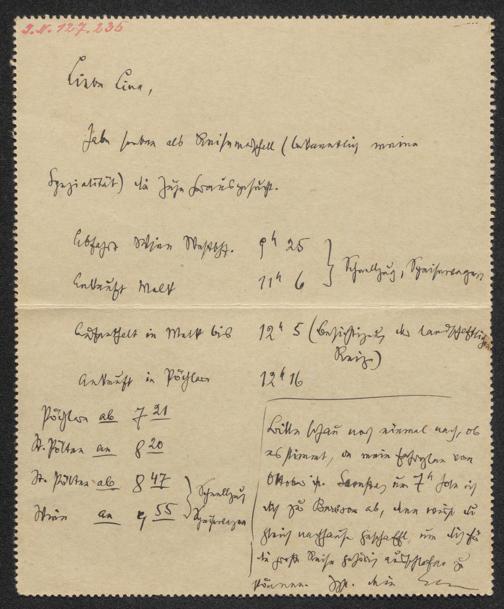 J.N. 127.235
Liebe Lina,
Habe soeben als Reisemarschall (bekanntlich meine
Spezialität) die Züge herausgesucht.
Abfahrt Wien Westbhf. 9h 25
Ankunft Melk 11h 6 } Schnellzug, Speisewagen
Aufenthalt in Melk bis 12h 5 (Besichtigung der landschaftlichen
Reize)
Ankunft in Pöchlarn 12h 16
Pöchlarn ab 7 21
St. Pölten an 8 20
St. Pölten ab 8 47 } Schnellzug
Wien an 9 55 Speisewagen
Bitte schau noch einmal nach, ob
es stimmt, da mein Fahrplan vom
Oktober ist. Samstag um 7h hole ich
dich zu ab, dann wirst du
gleich nachhause geschafft, um dich für
die große Reise gehörig ausschlafen zu
können. dein